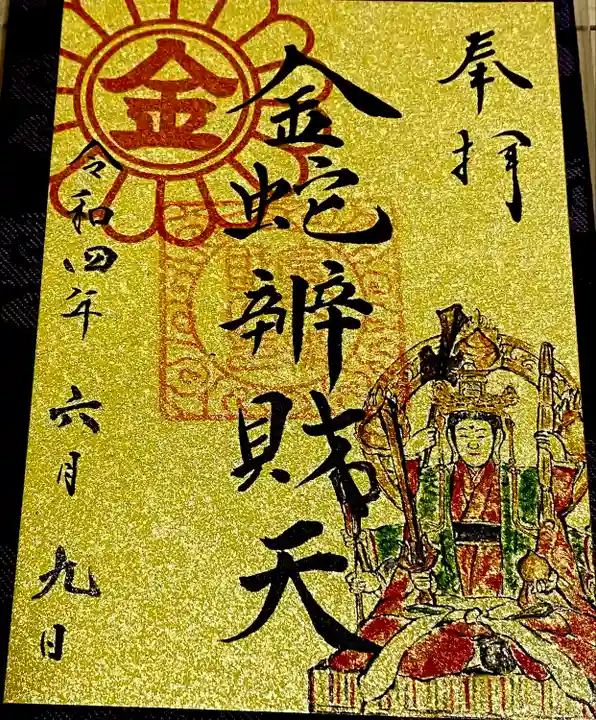 奉拝
金蛇辨財天
令和四年 六月 九日
金